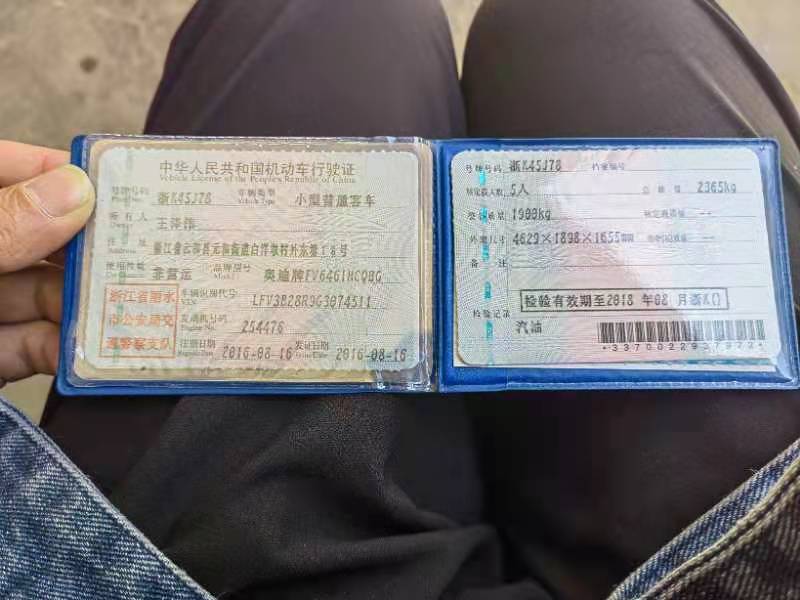 中华人民共和国机动车行驶证
Vehicle License of the People's Republic of China
号牌号码 浙K45J78 车辆类型 小型普通客车
Plate No. Vehicle Type
所有人 王泽伟
Owner
住址 浙江省云和县元和街道白垟墩村外东巷18号
使用性质 非营运 品牌型号 奥迪牌FV6461HCQBG
Model
浙江省丽水
市公安局交
通警察支队
车辆识别代号 LFV3B28R9G3074511
VIN
发动机号码 254476
Engine No.
注册日期 2016-08-16 发证日期 2016-08-16
Register Date Issue Date
号牌号码 浙K45J78 档案编号
核定载人数 5人 总质量 2365kg
整备质量 1900kg 核定载质量 --
外廓尺寸 4629×1898×1655mm 准牵引总质量 --
备注
检验有效期至2018年08月浙K()
检验记录
汽油
*3370022937922*